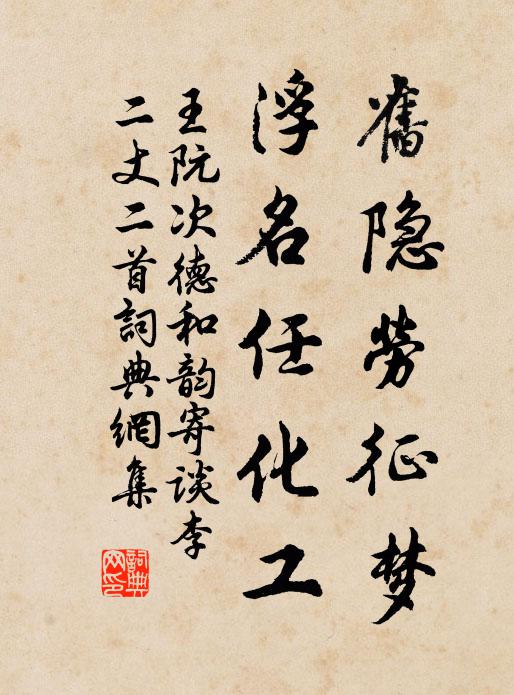 舊隐勞征梦
浮名任化工
王阮次德和韵寄谈李
二丈二首詞典網集
詞典网印